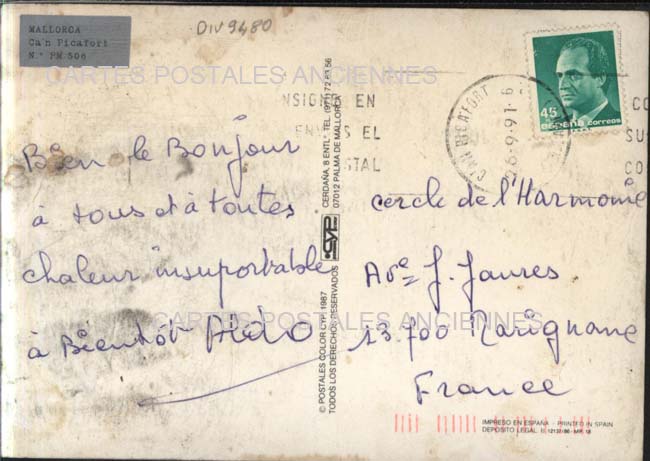 MALLORCA
Ca'n Picafort
N.º PM 506
DIV9480
CARTES POSTALES ANCIENNES
45
españa correos
CA'N PICAFORT
-6.9.91
NSIGNE EN
EL
STAL
CO
SU
CO
Bien le Bonjour
à tous et à toutes
chaleur insuportable
à Bientôt Aldo
CERDAÑA, 8 ENTLº TEL. (971)
07012 PALMA DE MALLORCA
cyp
© POSTALES COLOR CYP, 1987
TODOS LOS DERECHOS RESERVADOS
cercle de l'Harmonie
Ave J. Jaures
13.700 Marignane
France
CARTES POSTALES ANCIENNES
IMPRESO EN ESPAÑA - PRINTED IN SPAIN
DEPOSITO LEGAL B. 12137/86 - MR. 18